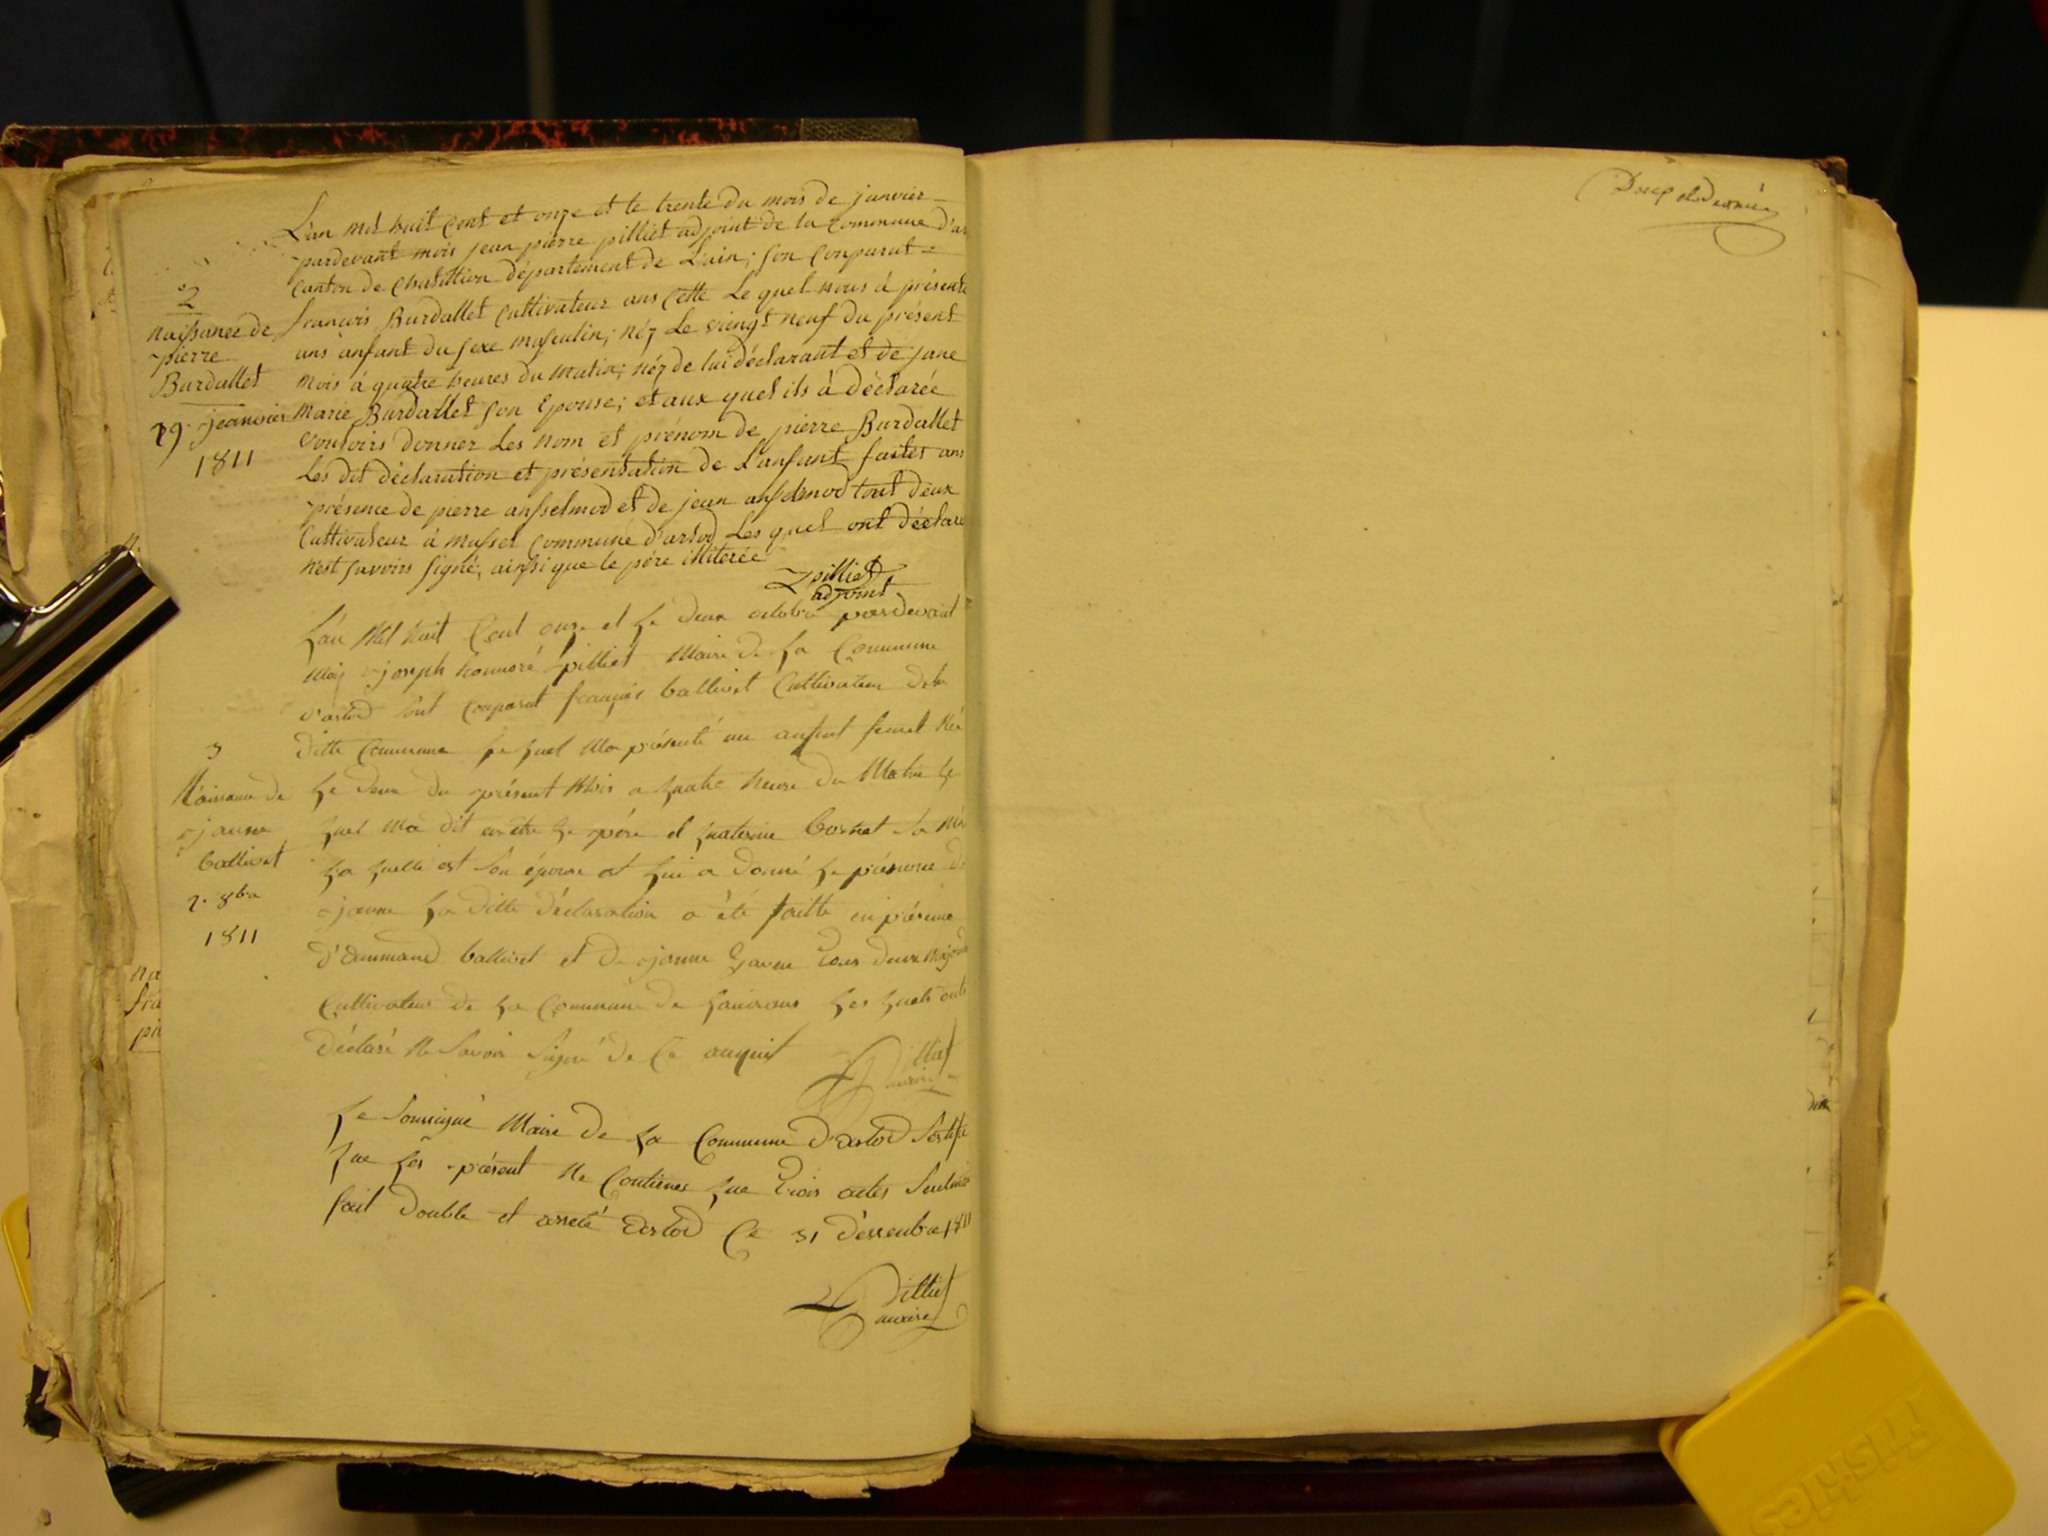 L'an mil huit cent et onze et le trente du mois de janvier
pardevant mois jean pierre pilliet adjoint de la commune d'ar
canton de Chatillion département de L'ain; son conparut =
françois Burdallet Cultivateur ans Cette Le quel nous à présente
uns anfant du sexe masculin; néz Le viengt neuf du présent
mois à quatre heures du matin; néz de lui déclarant et de jane
Marie Burdallet son Epouse; et aux quel ils à déclarée
vouloirs donner Les nom et prénom de pierre Burdallet
Les dit déclaration et présentation de L'anfant faites ans
présence de pierre ansselmod et de jean anselmod tout deux
Cultivateur à musses commune d'arlod Les quel ont déclare
nest savoirs signé, ainssi que le pére illiterée
pilliet
adjoint
2
naissance de
pierre
Burdallet
29 jeanvier
1811
L'an Mil huit Cent onze et Le deux octobre pardevant
Moi joseph honnoré pilliet Maire de La Commune
d'arlod sont Conparut françois ballivet Cultivateur de la
ditte Commune Le quel Ma présenté un anfant femel Née
Le deux du présent Mois a quatre heure du Matin Le
quel Ma dit en être Le pére et Caterine bornet sa Mé
La quelle est son épouse et lui a donné Le prénom de
janne La ditte déclaration a été faitte en présence
d'ammand ballivet et de janne tous deux Majeur
Cultivateur de La Commune de Les quels ont
déclaré Ne savoir signé de Ce anquit
pilliet
maire
3
Naissance de
janne
ballivet
2. 8bre
1811
Le soussigné Maire de La Commune d'arlod sertifie
que Les présent Ne Contienes que trois actes seulment
fait double et areté arlod Ce 31 désembre 1811
pilliet
maire
Na
fra
pi